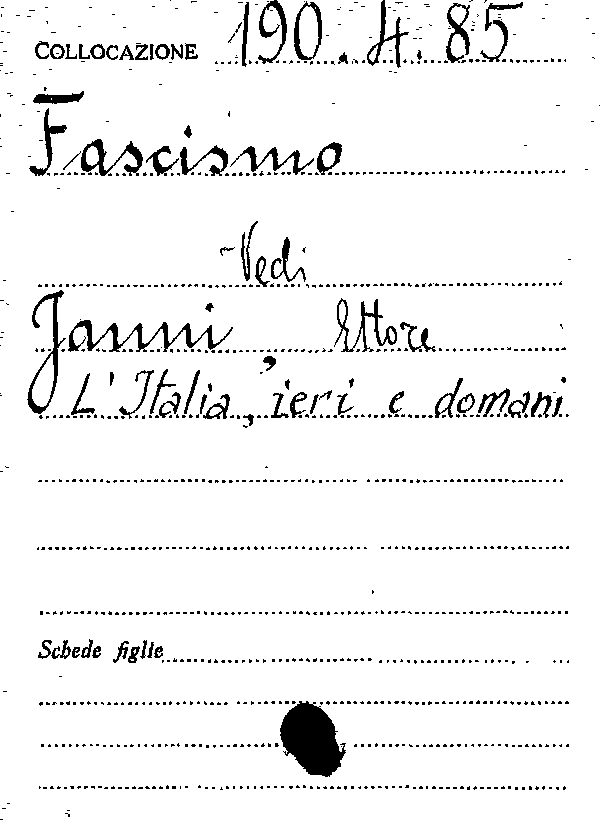 COLLOCAZIONE 190.4.85
Fascismo
Vedi
Janni, Ettore
L'Italia, ieri e domani
Schede figlie